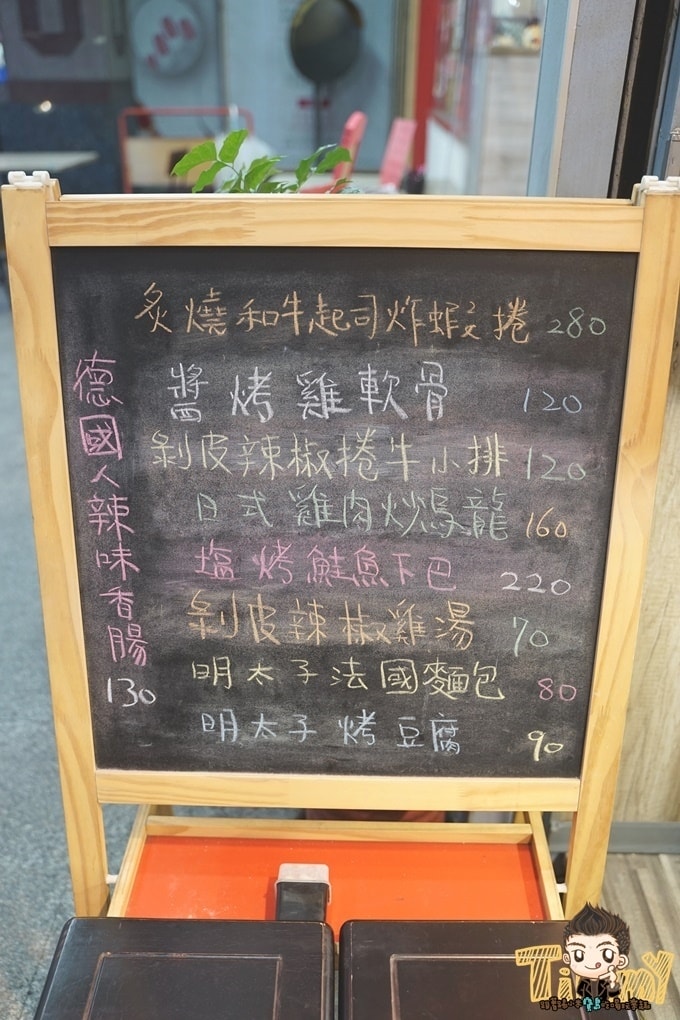 炙燒和牛起司炸蝦捲 280
醬烤雞軟骨 120
剝皮辣椒捲牛小排 120
日式雞肉炒烏龍 160
塩烤鮭魚下巴 220
剝皮辣椒雞湯 70
明太子法國麵包 80
明太子烤豆腐 90
德國人辣味香腸 130
TimmY